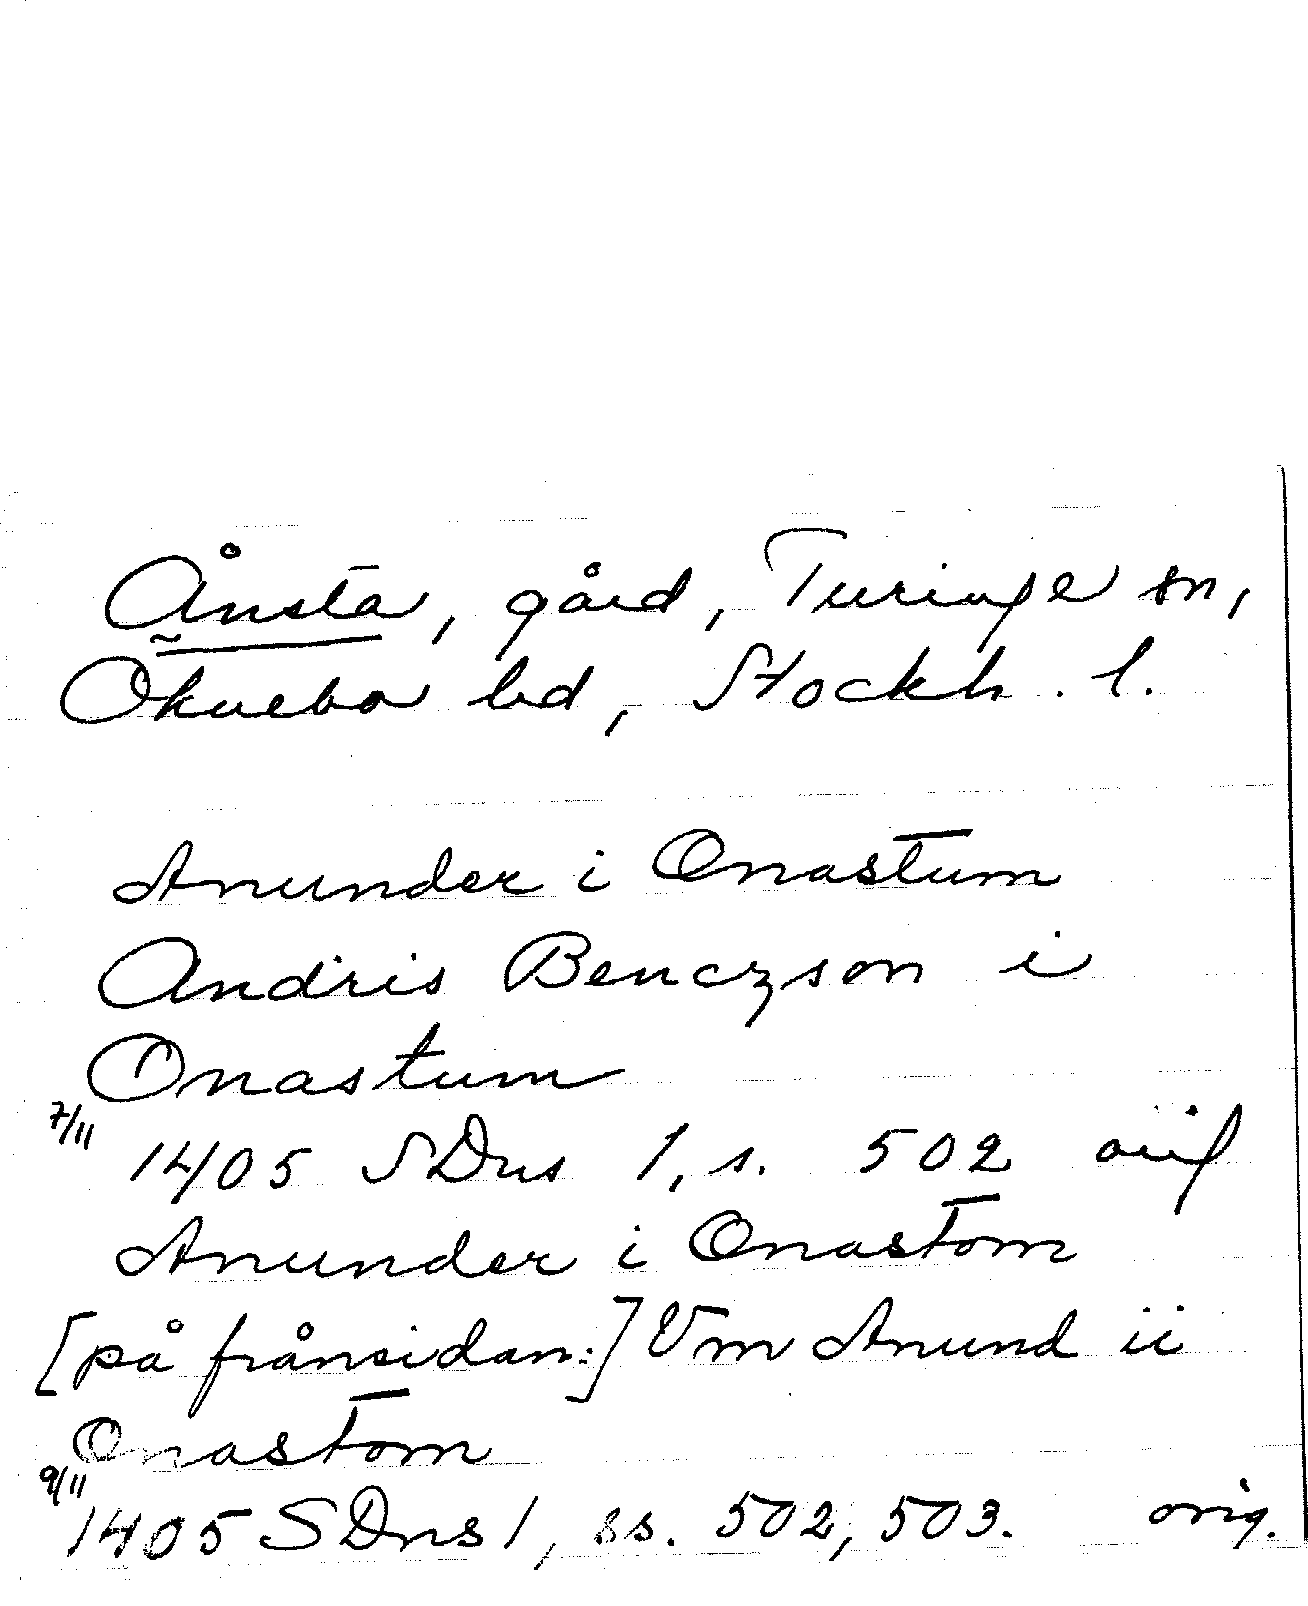 Ånsta, gård, Turinge sn,
Öknebo hd, Stockh. l.
Anunder i Onastum
Andris Benczson i
Onastum
7/11 1405 SDns 1, s. 502 orig
Anunder i Onastom
[på frånsidan:] Vm Anund ii
Onastom
9/11 1405 SDns 1, ss. 502, 503. orig.